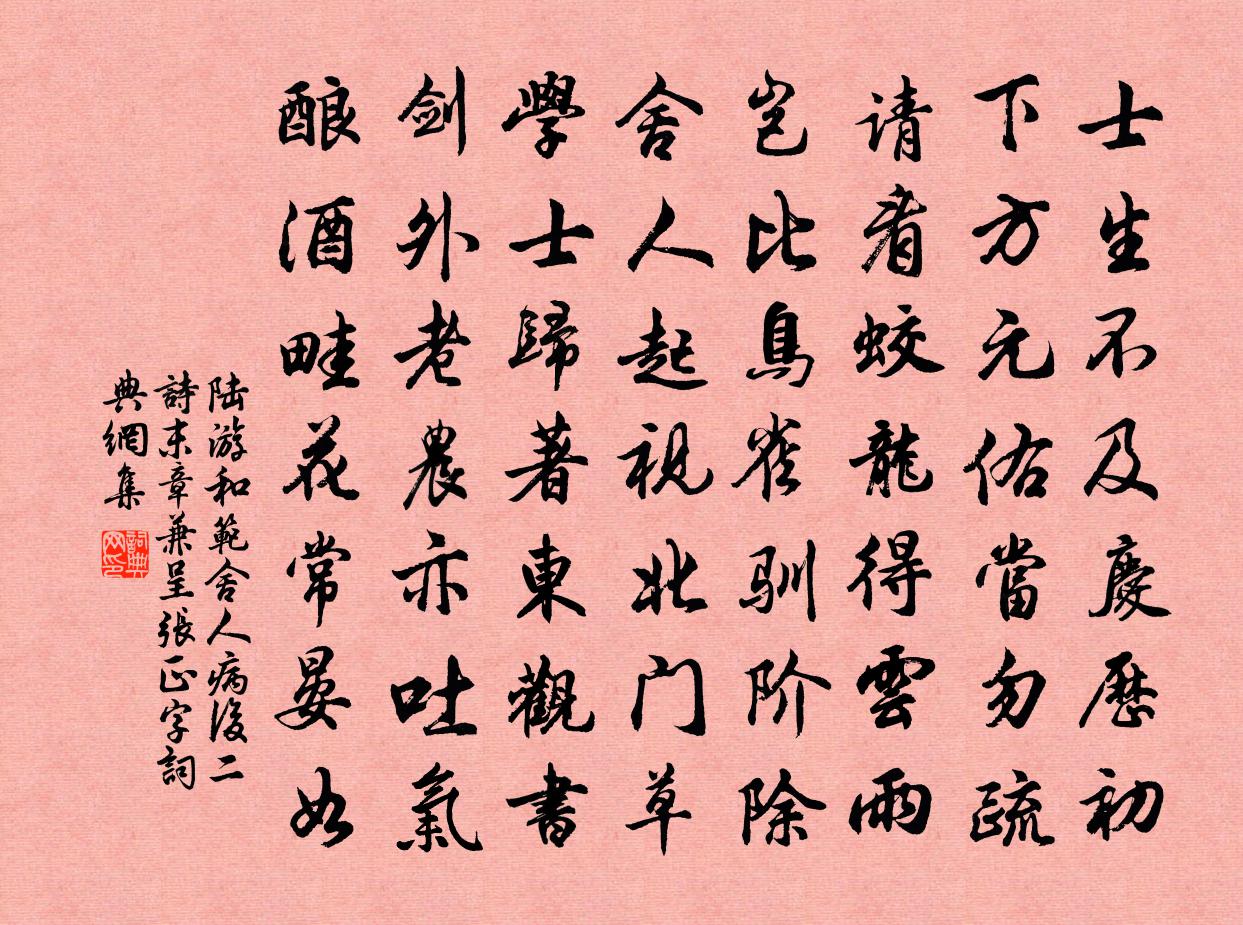 士生不及慶歷初
下方元佑當勿疏
请看蛟龍得雲雨
岂比鳥雀驯阶除
舍人起視北门草
學士歸著東觀書
剑外老農亦吐氣
酿酒畦花常晏如
陆游和範舍人病後二
詩末章兼呈張正字詞
典網集
詞典网印